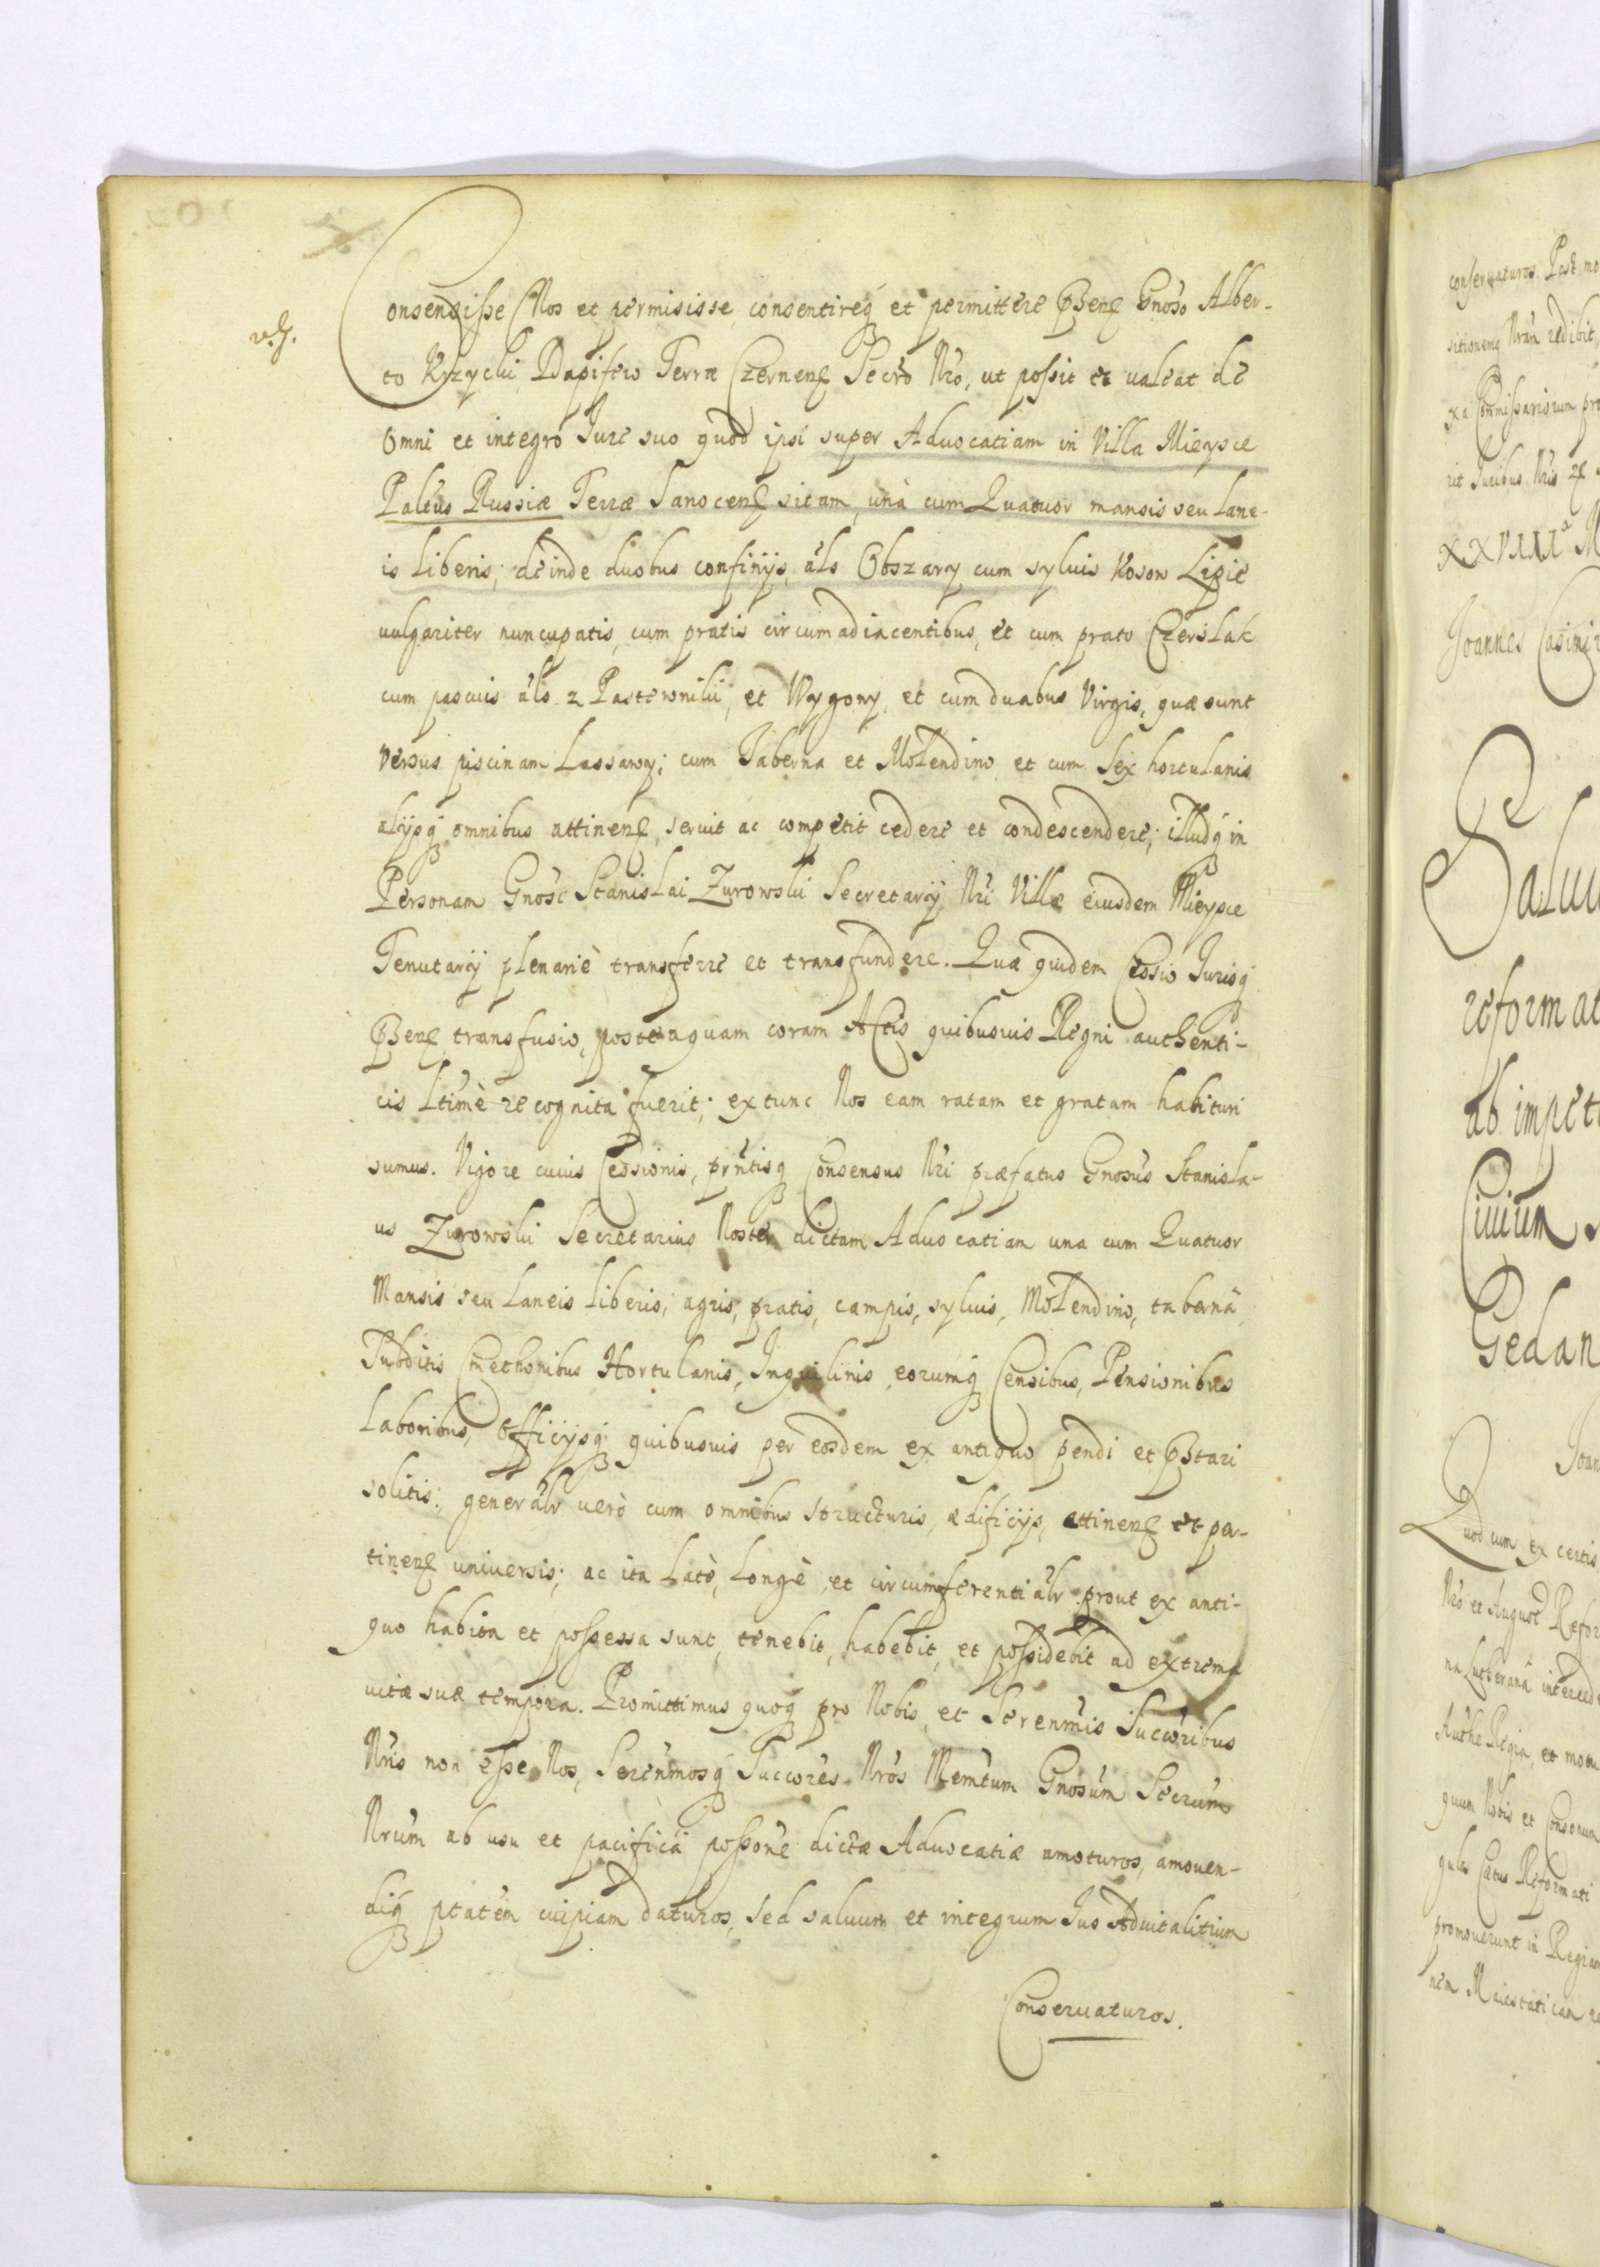 Consensisse Nos et permisisse, consentireq et permittere pñtibus Gnoso Alber-
to Krzycki Dapifero Terræ Czernen Secro Nro, ut possit et valeat de
omni et integro Jure suo quod ipsi super Advocatiam in Villa Mieysce
Paltus Russiæ Terræ Sanocen sitam, unà cum Quatuor mansis seu lane-
is liberis; deinde duobus confinijs, als Obszary cum sylvis Koson Ligie
vulgariter nuncupatis, cum pratis circumadiacentibus, et cum prato Czerslak
cum pascuis als z Pastewniki, et Wygony, et cum duabus Virgis, quæ sunt
versus piscinam Lassawy; cum Taberna et Molendino et cum sex hortulanis
alijsq omnibus attinen, servit ac competit cedere et condescendere; illudq in
Personam Gnosi Stanislai Zurowski Secretarij Nri Villæ eiusdem Mieysce
Tenutarij plenariè transferre et transfundere. Quæ quidem Cessio Jurisq
transfusio, posteaquam coram Actis quibusvis Regni authenti-
cis ltimè recognita fuerit; extunc Nos eam ratam et gratam habituri
sumus. Vigore cuius Cessionis, prñtisq Consensus Nri præfatus Gnosus Stanisla-
us Zurowski Secretarius Noster dictam Advocatiam una cum Quatuor
Mansis seu Laneis liberis, agris, pratis, campis, sylvis, Molendino, tabernâ,
Subditis Cmethonibus Hortulanis, Inquilinis, eorumq Censibus, Pensionibus
Laboribus, Officijsq quibusvis per eosdem ex antiquo pendi et pstari
solitis; generalr verò cum omnibus structuris, ædificijs, attinen et per-
tinen universis; ac ita latè, longè, et circumferentialr prout ex anti-
quo habita et possessa sunt, tenebit, habebit, et possidebit ad extrema
vitæ suæ tempora. Promittimus quoq pro Nobis, et Serenmis Succoribus
Nris non esse Nos, Serenmosq Succores Nros Memtum Gnosum Secrum
Nrum ab usu et pacificâ possone dictæ Advocatiæ amoturos, amoven-
diq ptatem cuipiam daturos, sed salvum et integrum Jus Advitalitium
Conservaturos.
conservaturos. Post mo
Joannes Casimir
Salvu
reformat
ab impet
Civium
Gedan
Quod cum ex certis
Nro et August Refor
na Lutherana interced
Authe Regia, et motu
quum Nobis et Consonum
gules Cætus Reformati
promoverunt in Regiam